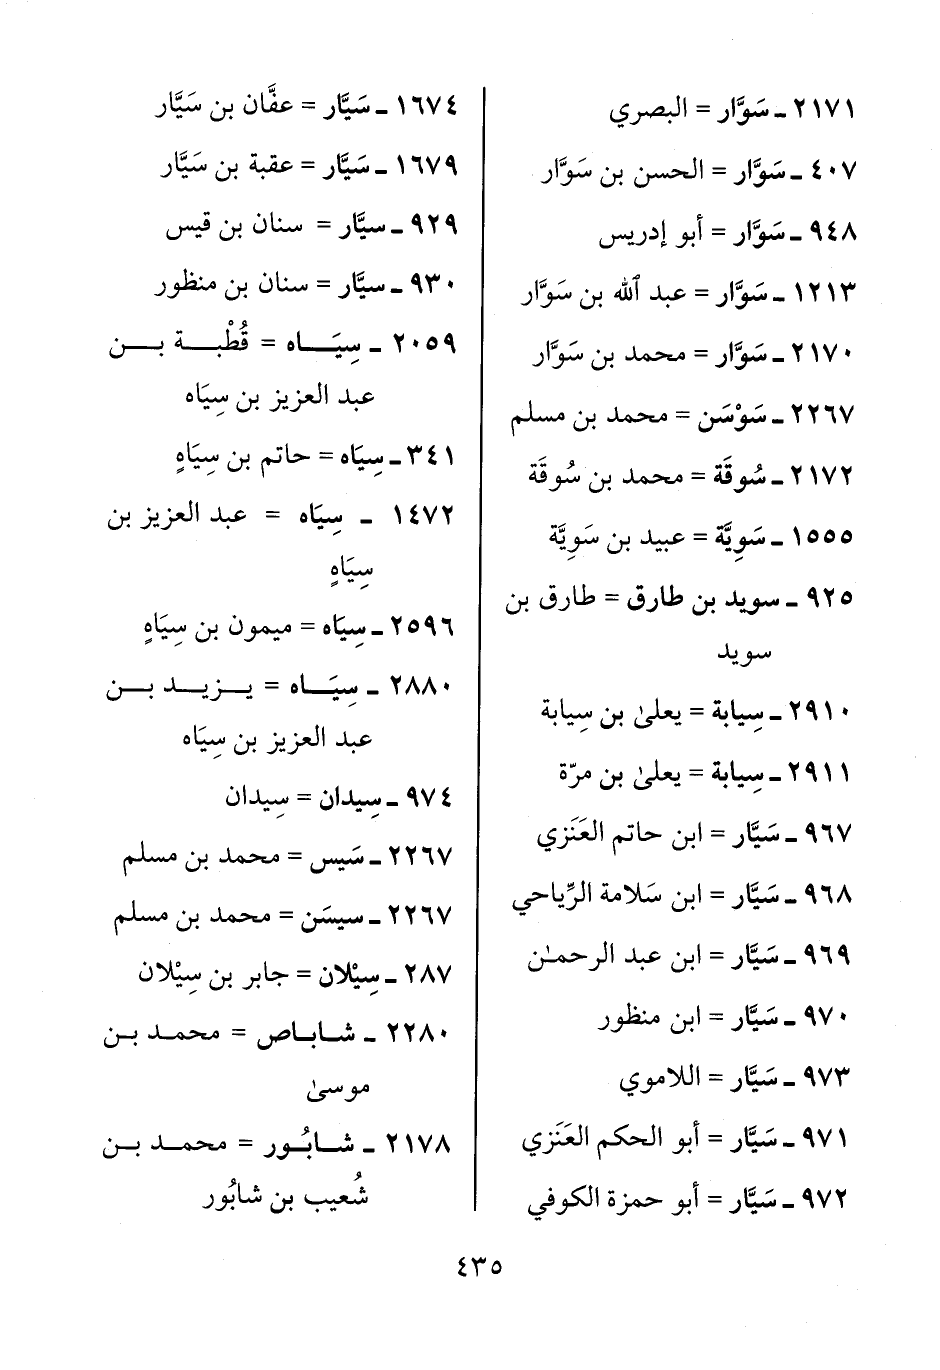 ٢١٧١ ـ سَوَّار = البصري
٤٠٧ ـ سَوَّار = الحسن بن سَوَّار
٩٤٨ ـ سَوَّار = أبو إدريس
١٢١٣ ـ سَوَّار = عبد ٱلله بن سَوَّار
٢١٧٠ ـ سَوَّار = محمد بن سَوَّار
٢٢٦٧ ـ سَوْسَن = محمد بن مسلم
٢١٧٢ ـ سُوقَة = محمد بن سُوقَة
١٥٥٥ ـ سَوِيَّة = عبيد بن سَوِيَّة
٩٢٥ ـ سويد بن طارق = طارق بن
سويد
٢٩١٠ ـ سِيابة = يعلىٰ بن سِيابة
٢٩١١ ـ سِيابة = يعلىٰ بن مرّة
٩٦٧ ـ سَيَّار = ابن حاتم العَنَزي
٩٦٨ ـ سَيَّار = ابن سَلامة الرِّياحي
٩٦٩ ـ سَيَّار = ابن عبد الرحمـٰن
٩٧٠ ـ سَيَّار = ابن منظور
٩٧٣ ـ سَيَّار = اللاموي
٩٧١ ـ سَيَّار = أبو الحكم العَنَزي
٩٧٢ ـ سَيَّار = أبو حمزة الكوفي
١٦٧٤ ـ سَيَّار = عفَّان بن سَيَّار
١٦٧٩ ـ سَيَّار = عقبة بن سَيَّار
٩٢٩ ـ سيَّار = سنان بن قيس
٩٣٠ ـ سيَّار = سنان بن منظور
٢٠٥٩ ـ سِيَـــاه = قُطْبــة بـــن
عبد العزيز بن سِيَاه
٣٤١ ـ سِيَاه = حاتم بن سِيَاهٍ
١٤٧٢ ـ سِيَاه = عبد العزيز بن
سِيَاهٍ
٢٥٩٦ ـ سِيَاه = ميمون بن سِيَاهٍ
٢٨٨٠ ـ سِيَــاه = يــزيــد بــن
عبد العزيز بن سِيَاه
٩٧٤ ـ سِيدان = سِيدان
٢٢٦٧ ـ سَيس = محمد بن مسلم
٢٢٦٧ ـ سيسَن = محمد بن مسلم
٢٨٧ ـ سِيْلان = جابر بن سِيْلان
٢٢٨٠ ـ شـابـاص = محمـد بـن
موسىٰ
٢١٧٨ ـ شـابُـور = محمـد بـن
شُعيب بن شابُور
٤٣٥